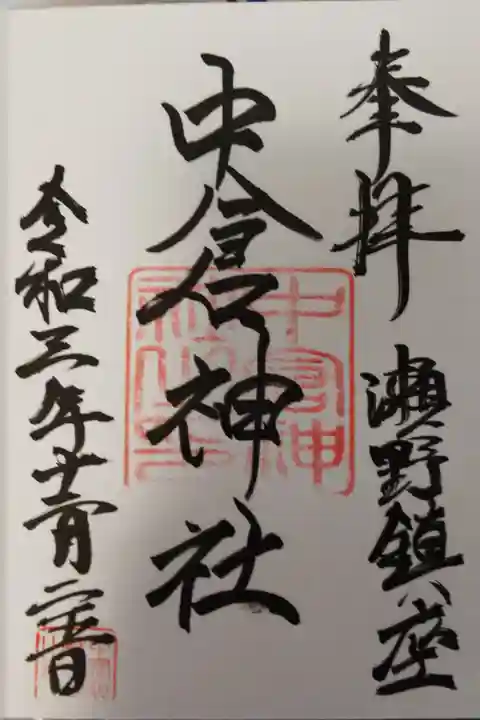 奉拝
瀬野鎮座
中倉神社
令和三年十二月二十五日